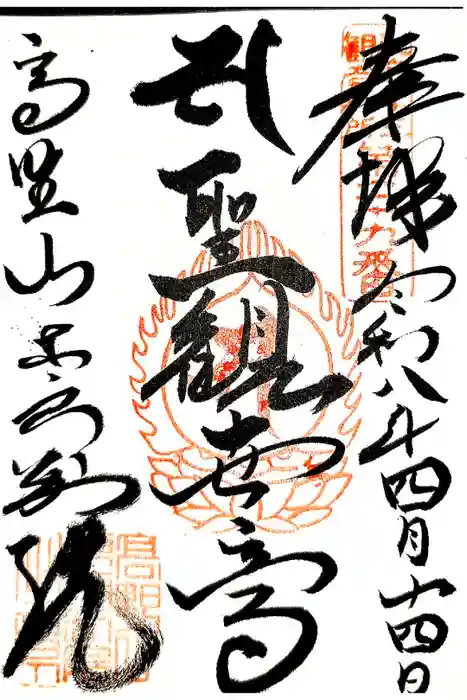 奉拝 令和八年四月十四日
聖観世音
高野山東京別院